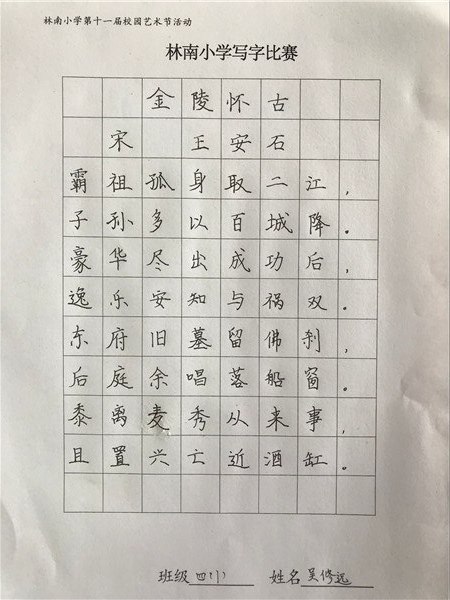 林南小学第十一届校园艺术节活动
林南小学写字比赛
金陵怀古
宋 王安石
霸祖孤身取二江,
子孙多以百城降。
豪华尽出成功后,
逸乐安知与祸双。
东府旧墓留佛刹,
后庭余唱落船窗。
黍离麦秀从来事,
且置兴亡近酒缸。
班级 四(1) 姓名 吴修远